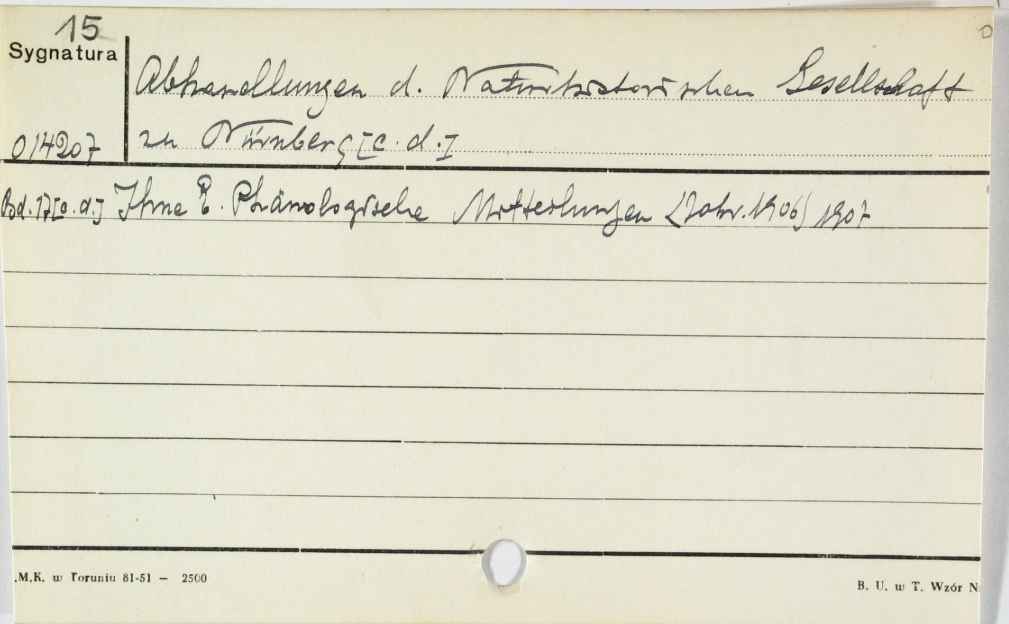 15
Sygnatura
Abhandlungen d. Naturhistorischen Gesellschaft
014207 zu Nürnberg [c. d.]
Bd. 17 [c. d.] Ihne E. Phänologische Mitteilungen (Jahr. 1906) 1907
.M.K. w Toruniu 81-51 — 2500
B. U. w T. Wzór N